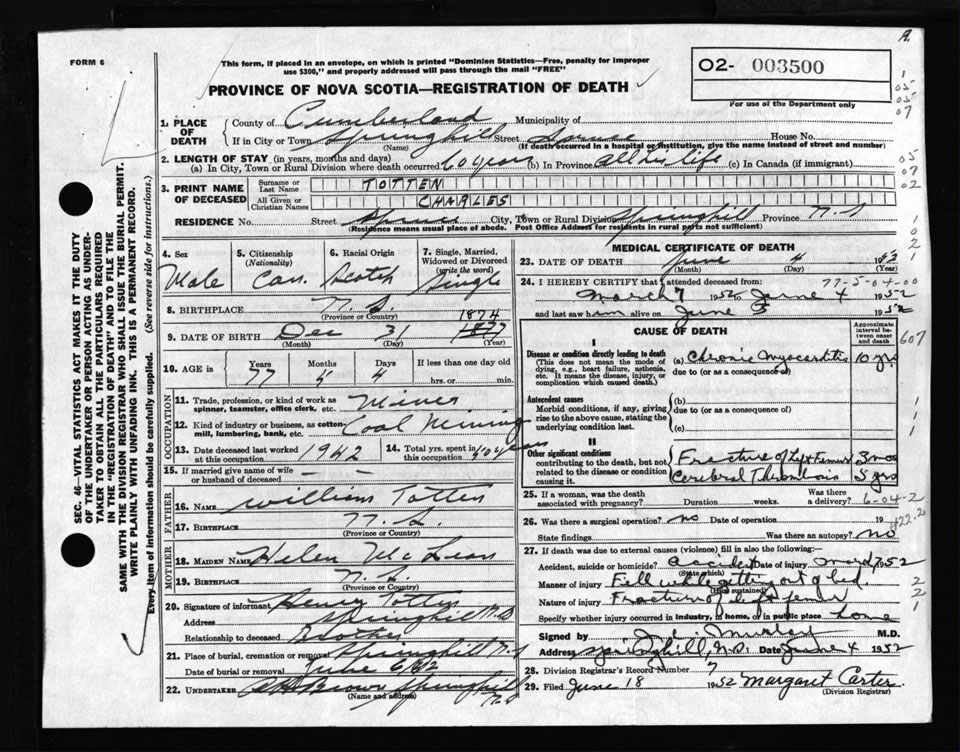 A.
FORM 6
This form, if placed in an envelope, on which is printed "Dominion Statistics—Free, penalty for improper
use $300," and properly addressed will pass through the mail "FREE"
O2- 003500
For use of the Department only
PROVINCE OF NOVA SCOTIA—REGISTRATION OF DEATH
1. PLACE OF DEATH
County of Cumberland Municipality of
If in City or Town Springhill Street Spruce House No.
(Name) (If death occurred in a hospital or institution, give the name instead of street and number)
2. LENGTH OF STAY (in years, months and days)
(a) In City, Town or Rural Division where death occurred 60 years (b) In Province all his life (c) In Canada (if immigrant)
3. PRINT NAME OF DECEASED
Surname or Last Name TOTTEN
All Given or Christian Names CHARLES
RESIDENCE No. Street Spruce City, Town or Rural Division Springhill Province N.S
(Residence means usual place of abode. Post Office Address for residents in rural parts not sufficient)
4. Sex Male
5. Citizenship (Nationality) Can.
6. Racial Origin Scotch
7. Single, Married, Widowed or Divorced (write the word) Single
8. BIRTHPLACE N.S.
(Province or Country)
1874
9. DATE OF BIRTH Dec 31 1877
(Month) (Day) (Year)
10. AGE in Years Months Days If less than one day old
77 5 4 hrs. or min.
OCCUPATION
11. Trade, profession, or kind of work as spinner, teamster, office clerk, etc. Miner
12. Kind of industry or business, as cotton-mill, lumbering, bank, etc. Coal Mining
13. Date deceased last worked at this occupation 1942
14. Total yrs. spent in this occupation 50 years
15. If married give name of wife or husband of deceased — —
FATHER
16. Name William Totten
17. Birthplace N.S.
(Province or Country)
MOTHER
18. MAIDEN NAME Helen McLean
19. BIRTHPLACE N.S.
(Province or Country)
20. Signature of informant Henry Totten
Address Springhill N.S
Relationship to deceased Brother
21. Place of burial, cremation or removal Springhill N.S
Date of burial or removal June 6/52
22. UNDERTAKER Brown Springhill N.S
(Name and address)
MEDICAL CERTIFICATE OF DEATH
23. DATE OF DEATH June 4 1952
(Month) (Day) (Year)
24. I HEREBY CERTIFY that I attended deceased from: 77-5-04-00
March 7 1952 to June 4 1952
and last saw him alive on June 3 1952
CAUSE OF DEATH
Approximate interval between onset and death
607
I
Disease or condition directly leading to death
(This does not mean the mode of dying, e.g., heart failure, asthenia, etc. It means the disease, injury, or complication which caused death.)
(a) Chronic Myocarditis 10 yrs
due to (or as a consequence of)
Antecedent causes
Morbid conditions, if any, giving rise to the above cause, stating the underlying condition last.
(b)
due to (or as a consequence of)
(c)
II
Other significant conditions
contributing to the death, but not related to the disease or condition causing it.
Fracture of Left Femur 3 mos
Cerebral Thrombosis 5 yrs
25. If a woman, was the death associated with pregnancy? Duration weeks. Was there a delivery?
6-04-2
26. Was there a surgical operation? no Date of operation 19
422.2
State findings Was there an autopsy? no
27. If death was due to external causes (violence) fill in also the following:—
Accident, suicide or homicide? accident Date of injury March 7 1952
(State which)
Manner of injury Fell while getting out of bed
(How sustained)
Nature of injury Fracture of left femur
Specify whether injury occurred in industry, in home, or in public place home
Signed by Murley M.D.
Address Springhill, N.S. Date June 4 1952
28. Division Registrar's Record Number 7
29. Filed June 18 1952 Margaret Carter
(Division Registrar)
SEC. 46—VITAL STATISTICS ACT MAKES IT THE DUTY
OF THE UNDERTAKER OR PERSON ACTING AS UNDER-
TAKER TO OBTAIN ALL THE PARTICULARS REQUIRED
IN THE "REGISTRATION OF DEATH" AND TO FILE THE
SAME WITH THE DIVISION REGISTRAR WHO SHALL ISSUE THE BURIAL PERMIT.
WRITE PLAINLY WITH UNFADING INK. THIS IS A PERMANENT RECORD.
Every item of information should be carefully supplied. (See reverse side for instructions.)